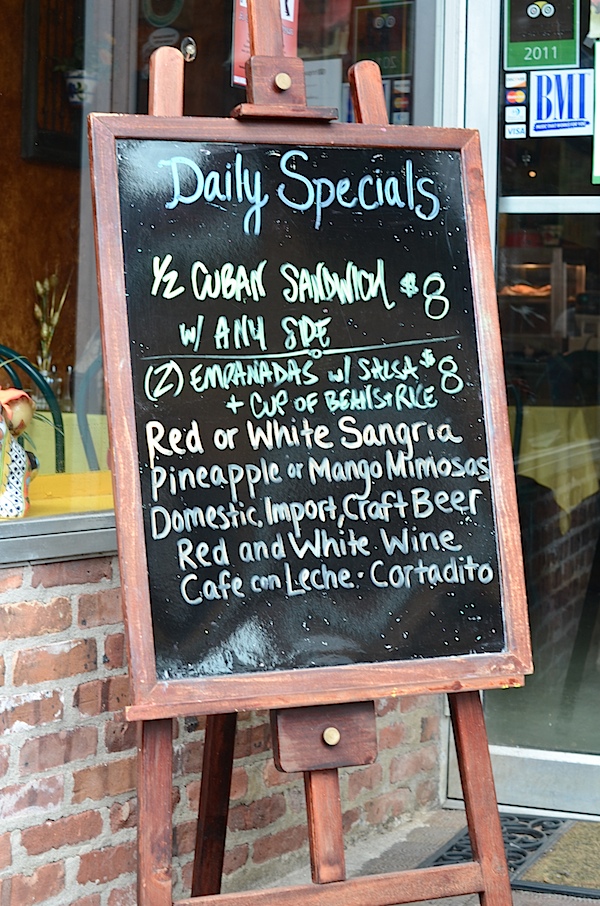 2011
BMI
VISA
Daily Specials
½ CUBAN SANDWICH $8
W/ ANY SIDE
(2) EMPANADAS w/ SALSA $8
+ CUP OF BEANS + RICE
Red or White Sangria
Pineapple or Mango Mimosas
Domestic, Import, Craft Beer
Red and White Wine
Cafe con Leche · Cortadito